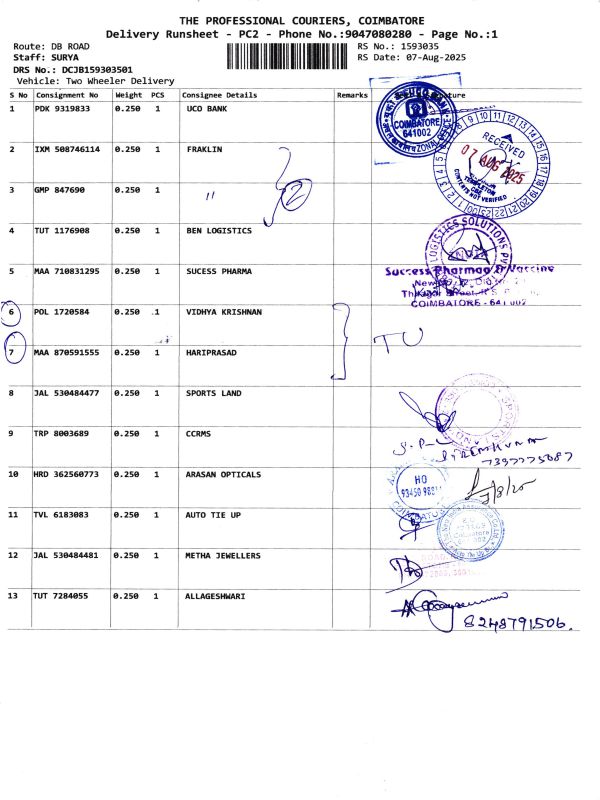 THE PROFESSIONAL COURIERS, COIMBATORE
Delivery Runsheet - PC2 - Phone No.:9047080280 - Page No.:1
Route: DB ROAD RS No.: 1593035
Staff: SURYA RS Date: 07-Aug-2025
DRS No.: DCJB159303501
Vehicle: Two Wheeler Delivery
S No Consignment No Weight PCS Consignee Details Remarks
1 PDK 9319833 0.250 1 UCO BANK
COIMBATORE
641002
2 IXM 508746114 0.250 1 FRAKLIN
RECEIVED
07 AUG 2025
TEMPLETON
CBE
CONTENTS NOT VERIFIED
3 GMP 847690 0.250 1 " 2
4 TUT 1176908 0.250 1 BEN LOGISTICS
LOGISTICS SOLUTIONS
5 MAA 710831295 0.250 1 SUCESS PHARMA
Success Pharmaa & Vaccine
COIMBATORE - 641 002
6 POL 1720584 0.250 1 VIDHYA KRISHNAN
7 MAA 870591555 0.250 1 HARIPRASAD
TU
8 JAL 530484477 0.250 1 SPORTS LAND
9 TRP 8003689 0.250 1 CCRMS
7397775087
10 HRD 362560773 0.250 1 ARASAN OPTICALS
HO
11 TVL 6183083 0.250 1 AUTO TIE UP
Coimbatore
12 JAL 530484481 0.250 1 METHA JEWELLERS
13 TUT 7284055 0.250 1 ALLAGESHWARI
8248791506.